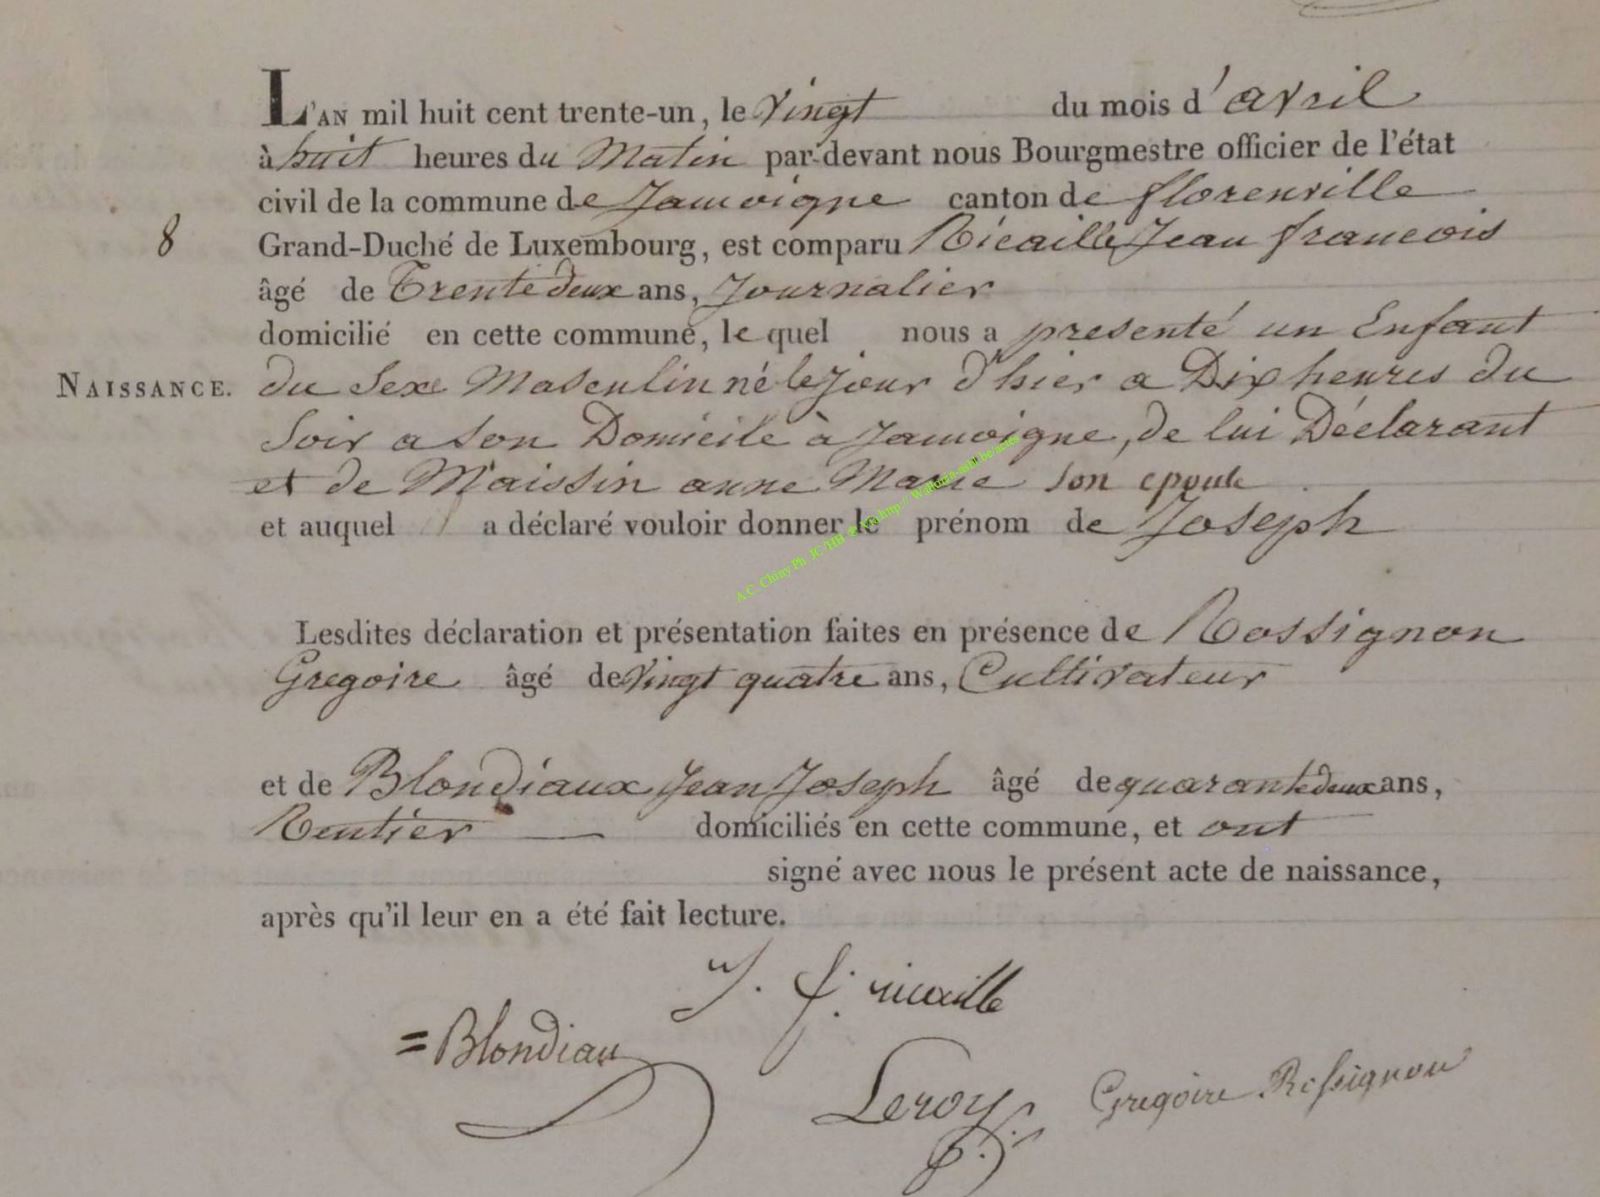 L'AN mil huit cent trente-un, le vingt du mois d'avril
à huit heures du Matin par-devant nous Bourgmestre officier de l'état
civil de la commune de Jamoigne canton de florenville
8 Grand-Duché de Luxembourg, est comparu Ricaille Jean francois
âgé de Trente deux ans, Journalier
domicilié en cette commune, le quel nous a presenté un Enfant
NAISSANCE. du Sexe Masculin né le jour d'hier a Dix heures du
Soir a son Domicile à Jamoigne, de lui Déclarant
et de Maissin anne Marie son epouse
et auquel il a déclaré vouloir donner le prénom de Joseph
A.C. Chiny Ph. JC/HH
Lesdites déclaration et présentation faites en présence de Rossignon
Gregoire âgé de vingt quatre ans, Cultivateur
et de Blondiaux Jean Joseph âgé de quarante deux ans,
Rentier domiciliés en cette commune, et ont
signé avec nous le présent acte de naissance,
après qu'il leur en a été fait lecture.
J. f. ricaille
= Blondiau
Leroy
Gregoire Rossignon